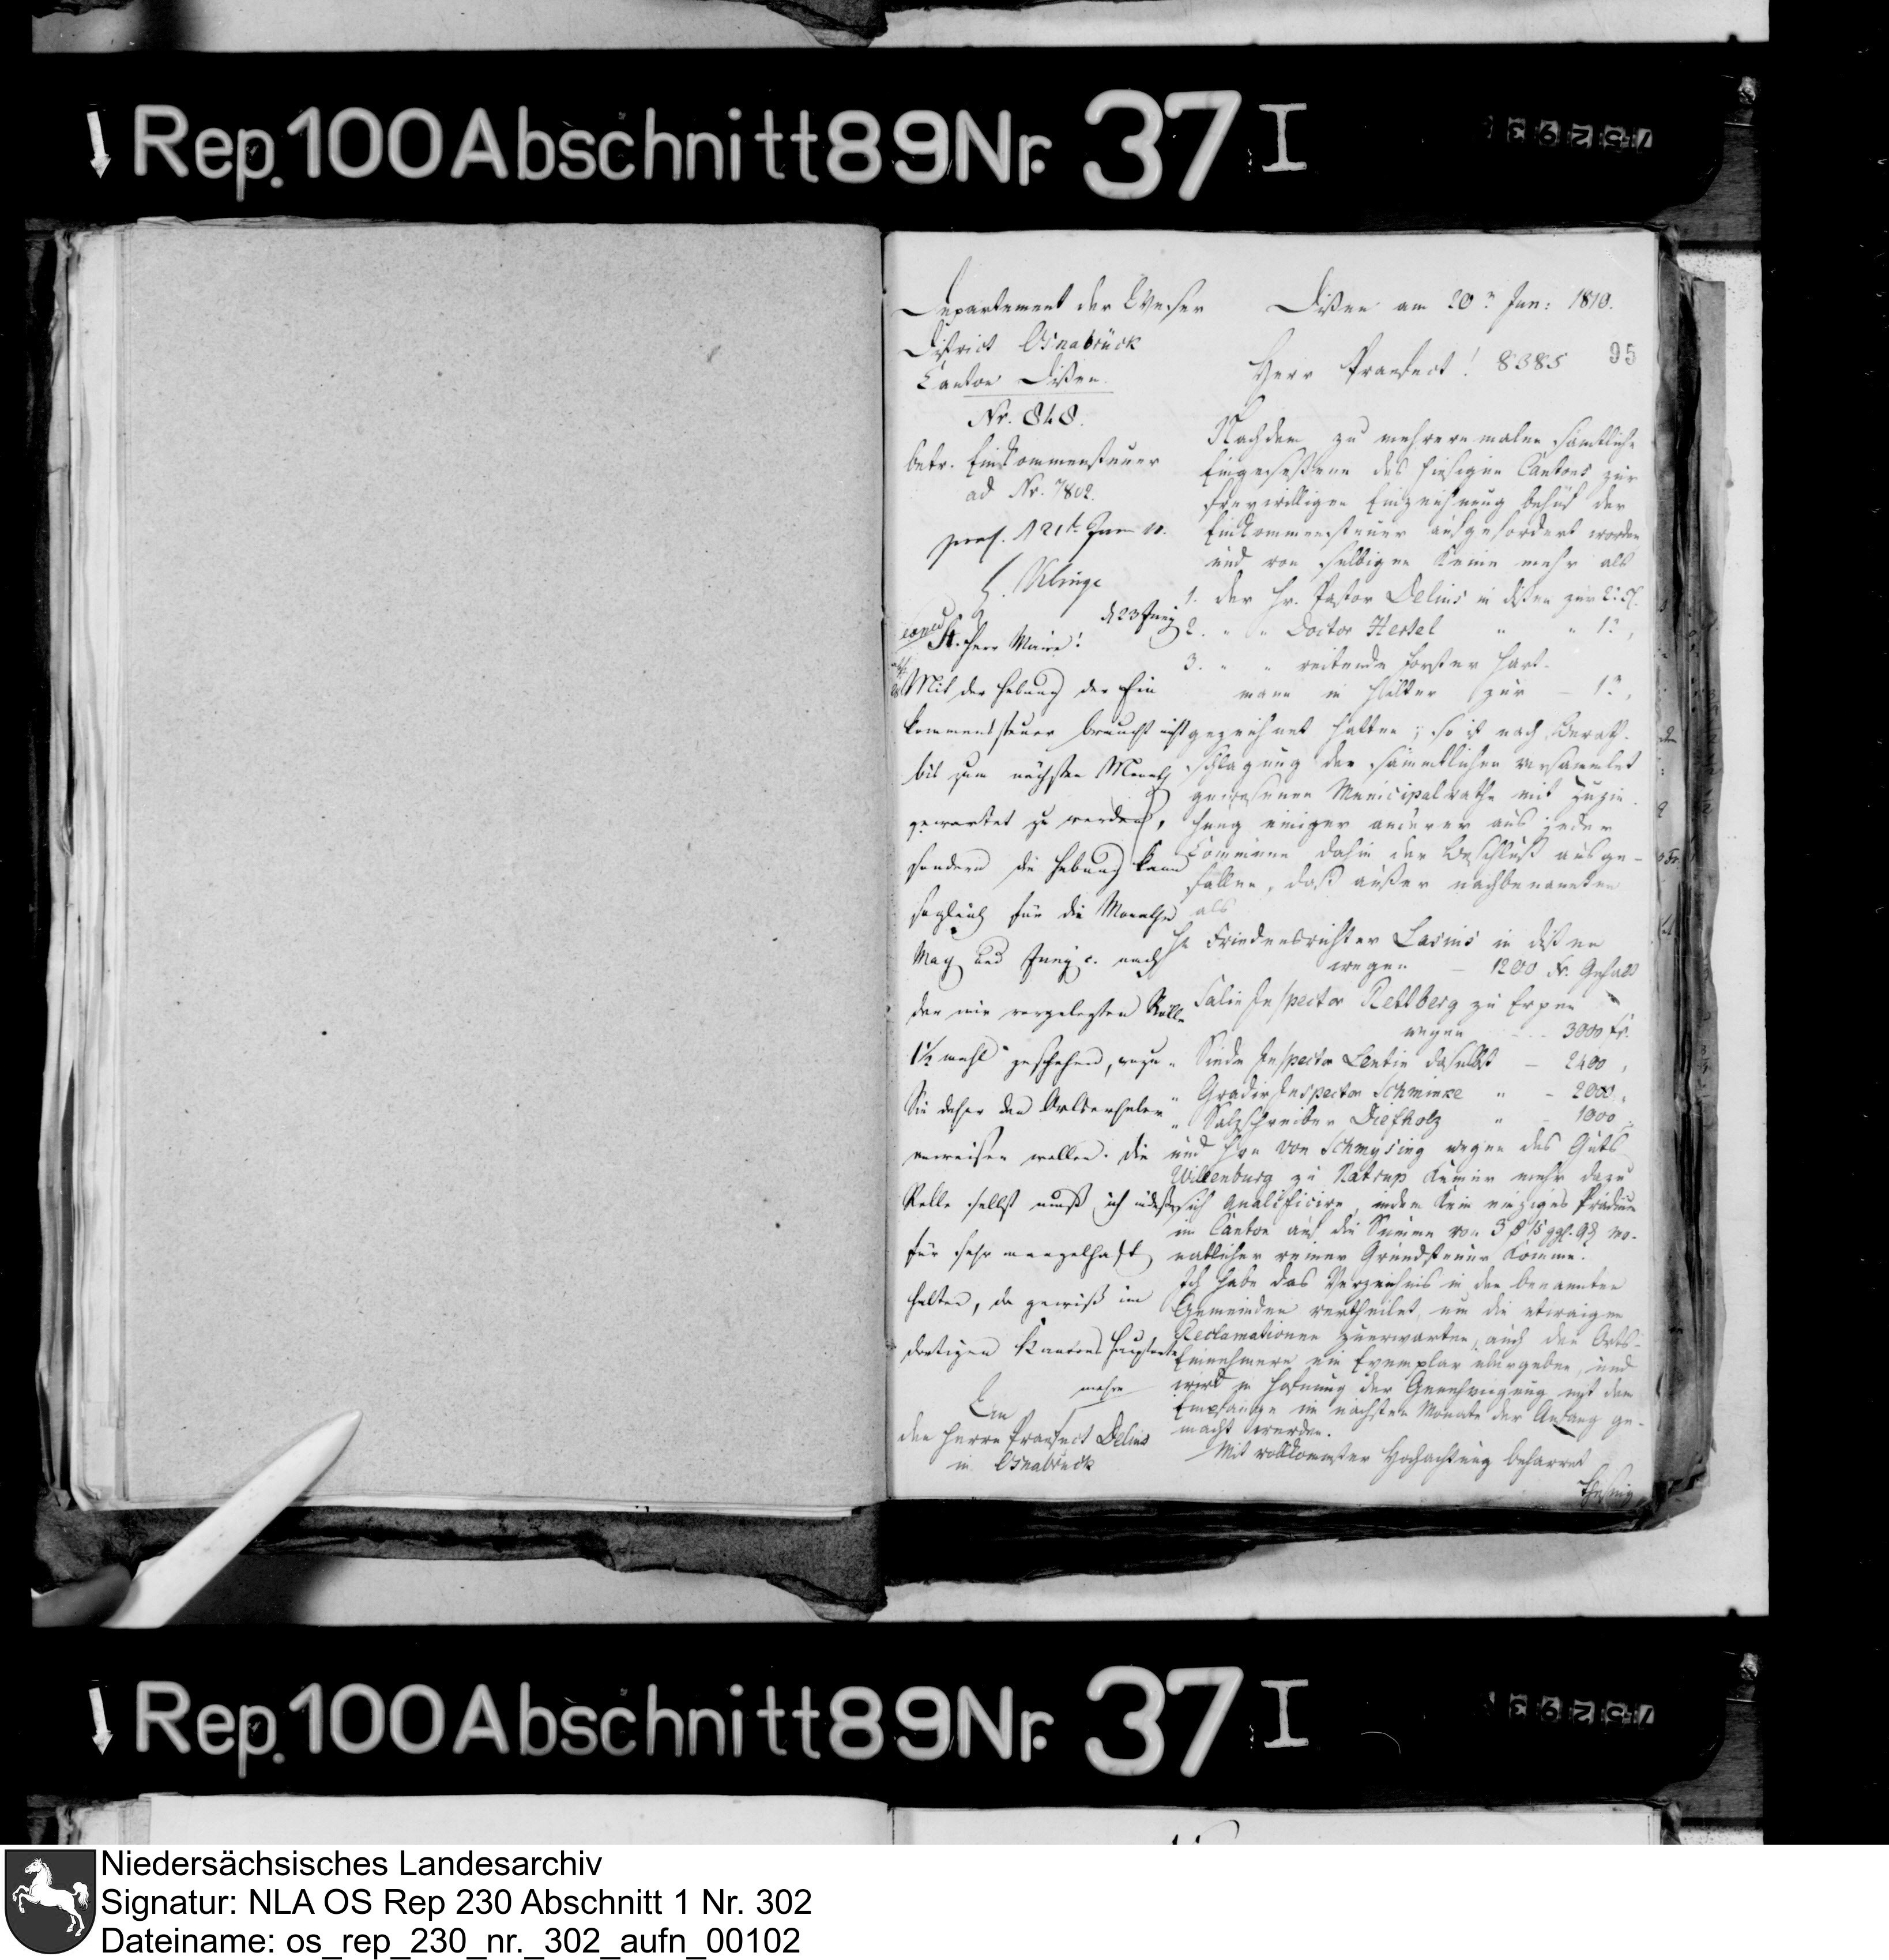 Rep. 100 Abschnitt 89 Nr. 37 I
Departement der Weser
District Osnabrück
Canton Dißen.
Nr. 848.
betr. Einkommensteuer
ad Nr. 7802.
Dißen am 20 Jun: 1810.
95
Herr Praefect! 8385
Nachdem zu mehreren malen sämtliche
Eingeseßene des hiesigen Cantons zur
freywilligen Einzeichnung behuf der
Einkommensteuer aufgefordert worden
und von selbigen keine mehr als
1. der Hr. Pastor Delius in Dißen zur 2.
2. " " Doctor Hertel " " 1
3. " " reitende Förster Hart-
mann in Hilter zur — 1
gezeichnet hatten; so ist nach Berath-
schlagung der sämmtlichen versammlet
gewesenen Municipalräthe mit Zuzie-
hung einiger anderer aus jeder
Commune dahin der Beschluß ausge-
fallen, daß außer nachbenannten
als
Hr Friedensrichter Lasius in Dißen
wegen — 1200 Fr. Gehalt
Salin Inspector Rettberg zu Erpen
wegen 3000 Fr.
" Siede Inspector Lentin daselbst — 2400
" Gradir Inspector Schminke " - 2000
" Salzschreiber Diefholz " 1000
und Hrn von Schmysing wegen des Guts
Wittenburg zu Natrup keiner mehr dazu
sich qualificire, indem kein einziges Praedium
im Canton auf die Summe von 3 15 ggr. 9 mo-
natlicher reiner Grundsteuer komme.
Ich habe das Verzeichnis in den benannten
Gemeinden vertheilet, um die etwaigen
Reclamationen zuerwarten, auch den Orts-
Einnehmern ein Exemplar übergeben, und
wird in Hofnung der Genehmigung mit dem
Empfange im nächsten Monate der Anfang ge-
macht werden.
Mit vollkommster Hochachtung beharret
pres. 21t Jun 10.
Klinge
d 23 Juny
Herr Maire!
Mit der Hebung der Ein
kommensteuer braucht nicht
bis zum nächsten Monath
gewartet zu werden,
sondern die Hebung kann
sogleich für die Monathe
May und Juny c. nach
den mir vorgelegten Rolle
1½ mahl geschehen, wozu
Sie daher den Ortserheber
anweisen wollen. Die
Rolle selbst muß ich indeß
für sehr mangelhaft
halten, da gewiß im
dortigen Kantons Hauptorte
mehre
An
den Herrn Praefect Delius
in Osnabrück
Rep. 100 Abschnitt 89 Nr. 37 I
Niedersächsisches Landesarchiv
Signatur: NLA OS Rep 230 Abschnitt 1 Nr. 302
Dateiname: os_rep_230_nr._302_aufn_00102